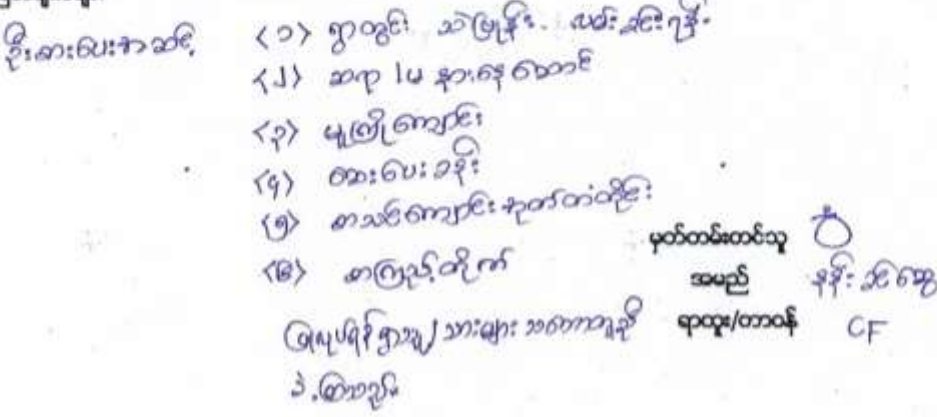 ဦးစားပေးအဆင့် (၁) ရွာတွင်း သဲဖြုန်း လမ်းခင်းရန်
(၂) ဆရာ/မ နားနေဆောင်
(၃) မူကြိုကျောင်း
(၄) ဆေးပေးခန်း
(၅) စာသင်ကျောင်း အုတ်တံတိုင်း
(၆) စာကြည့်တိုက်
ပြုလုပ်ရန် ရွာသူ/သားများ သဘောတူညီ
ခဲ့ကြသည်။
မှတ်တမ်းတင်သူ
အမည် နန်းခင်ဆွေ
ရာထူး/တာဝန် CF